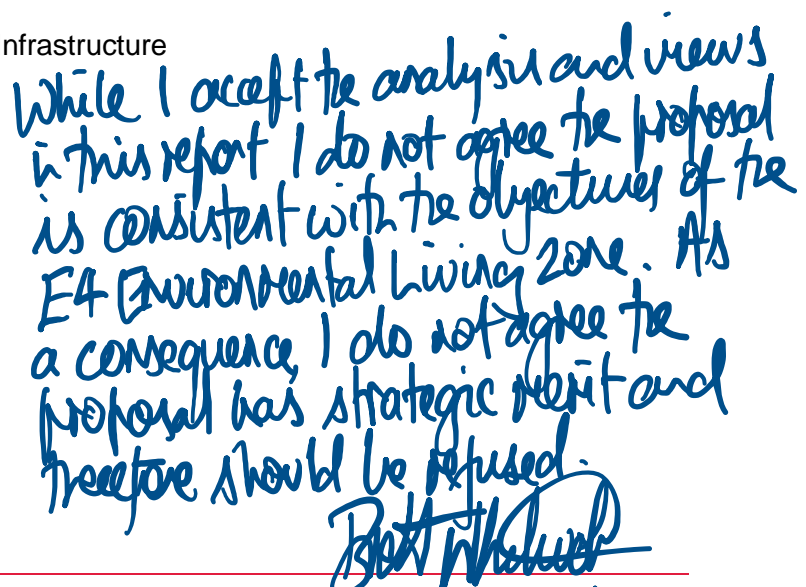 nfrastructure
While I accept the analysis and views
in this report I do not agree the proposal
is consistent with the objectives of the
E4 Environmental Living Zone. As
a consequence, I do not agree the
proposal has strategic merit and
therefore should be refused.
Brett